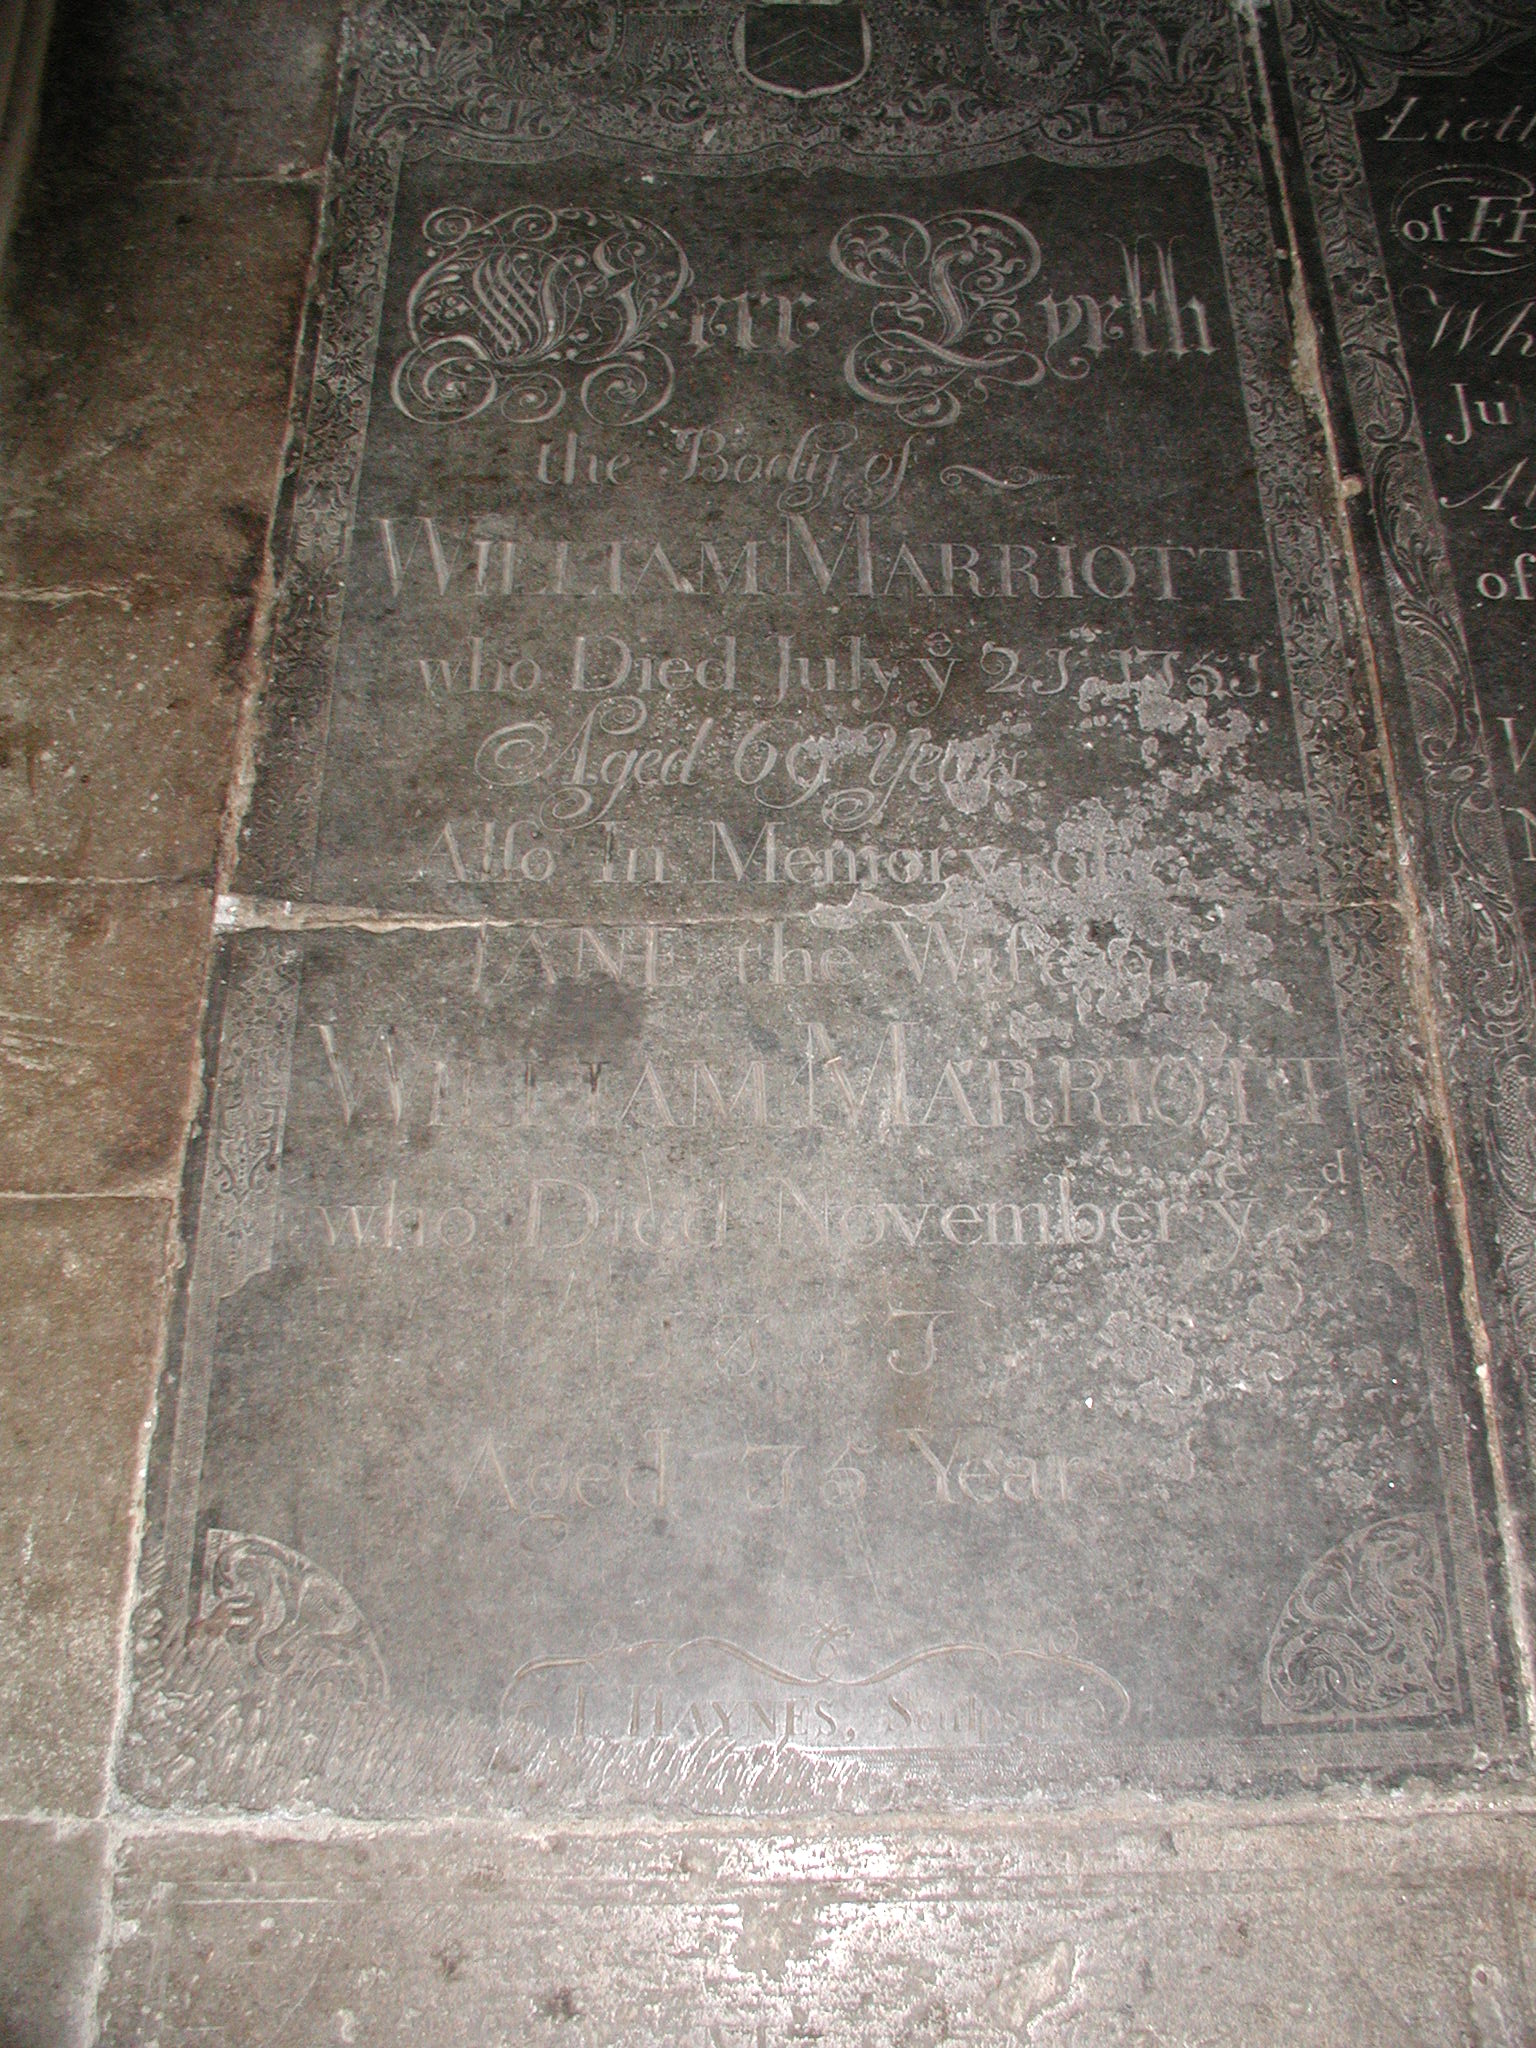 Here Lyeth
the Body of
WILLIAM MARRIOTT
who Died July yͤ 21 1751
Aged 69 Years
Alſo In Memory of
JANE the Wife of
WILLIAM MARRIOTT
who Died November yͤ 3ᵈ
Aged 75 Years
I. HAYNES, Sculpsit
Lieth
of
Wh
Ju
of